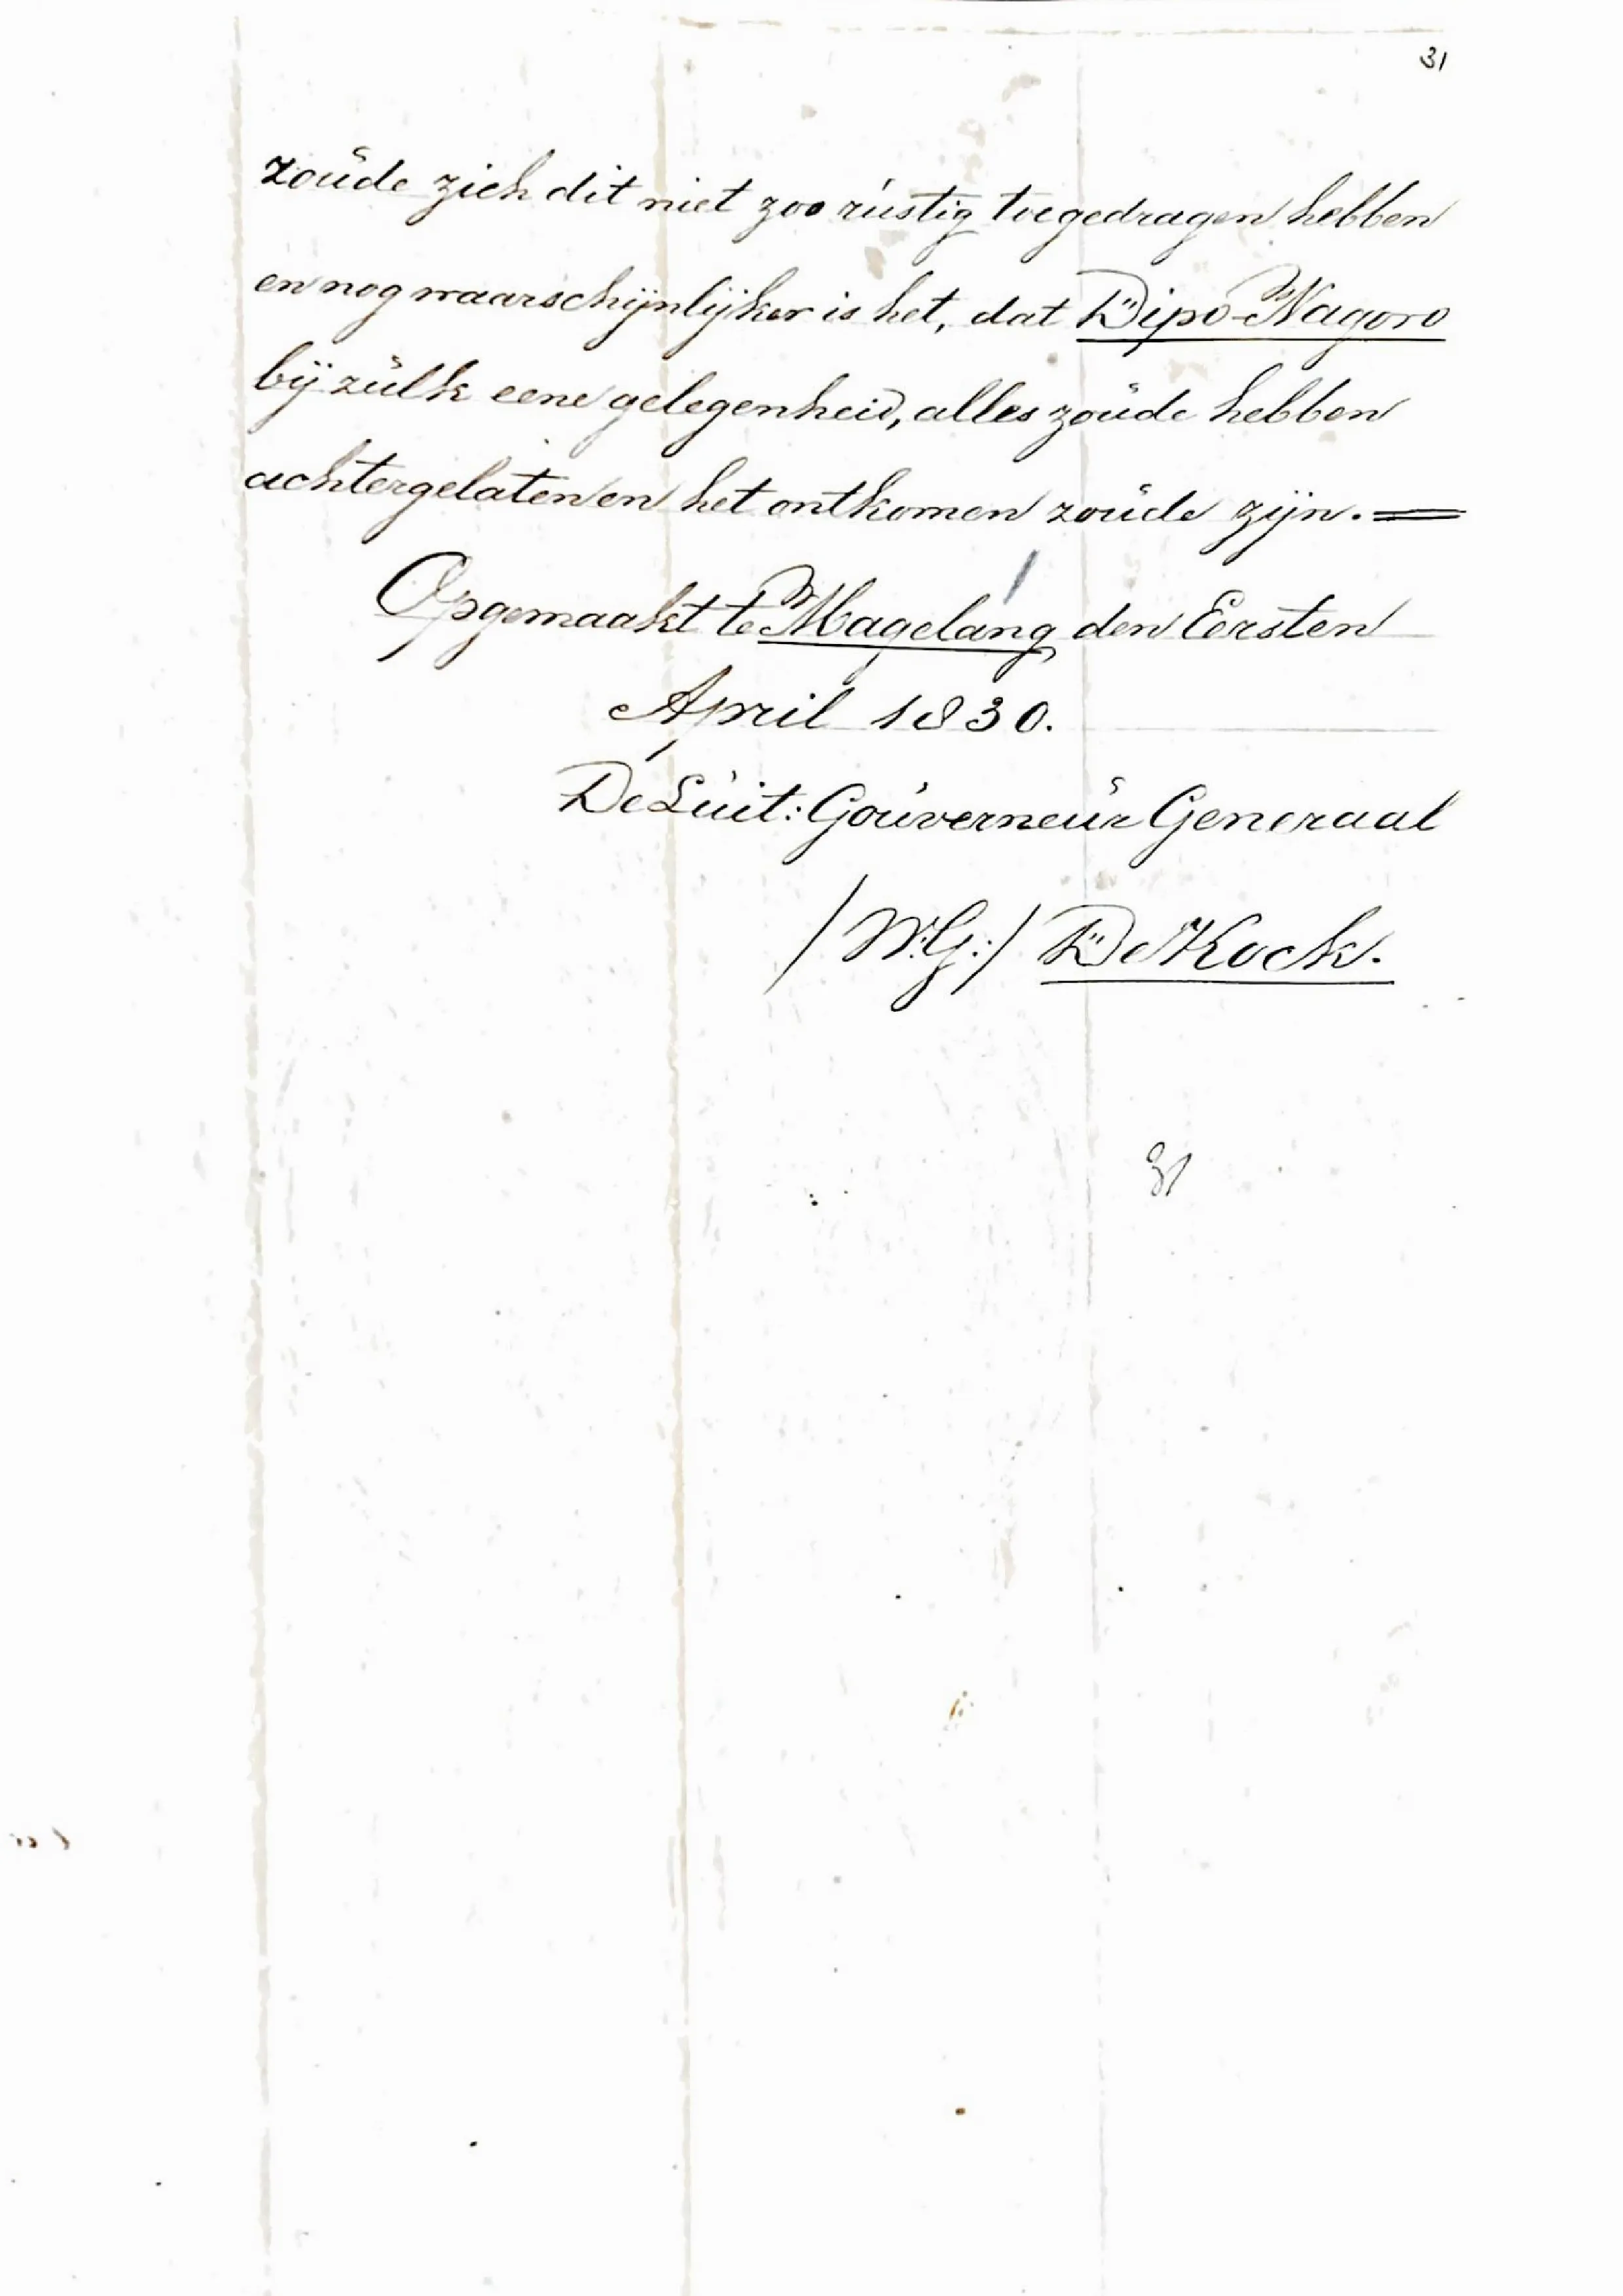 31
zoude zich dit niet zoo rustig toegedragen hebben
en nog waarschijnlijker is het, dat Dipo-Nagoro
bij zulk eene gelegenheid, alles zoude hebben
achtergelaten en het ontkomen zoude zijn. =
Opgemaakt te Magelang den Eersten
April 1830.
De Luit: Gouverneur Generaal
/W:G:/ De Kock.
31